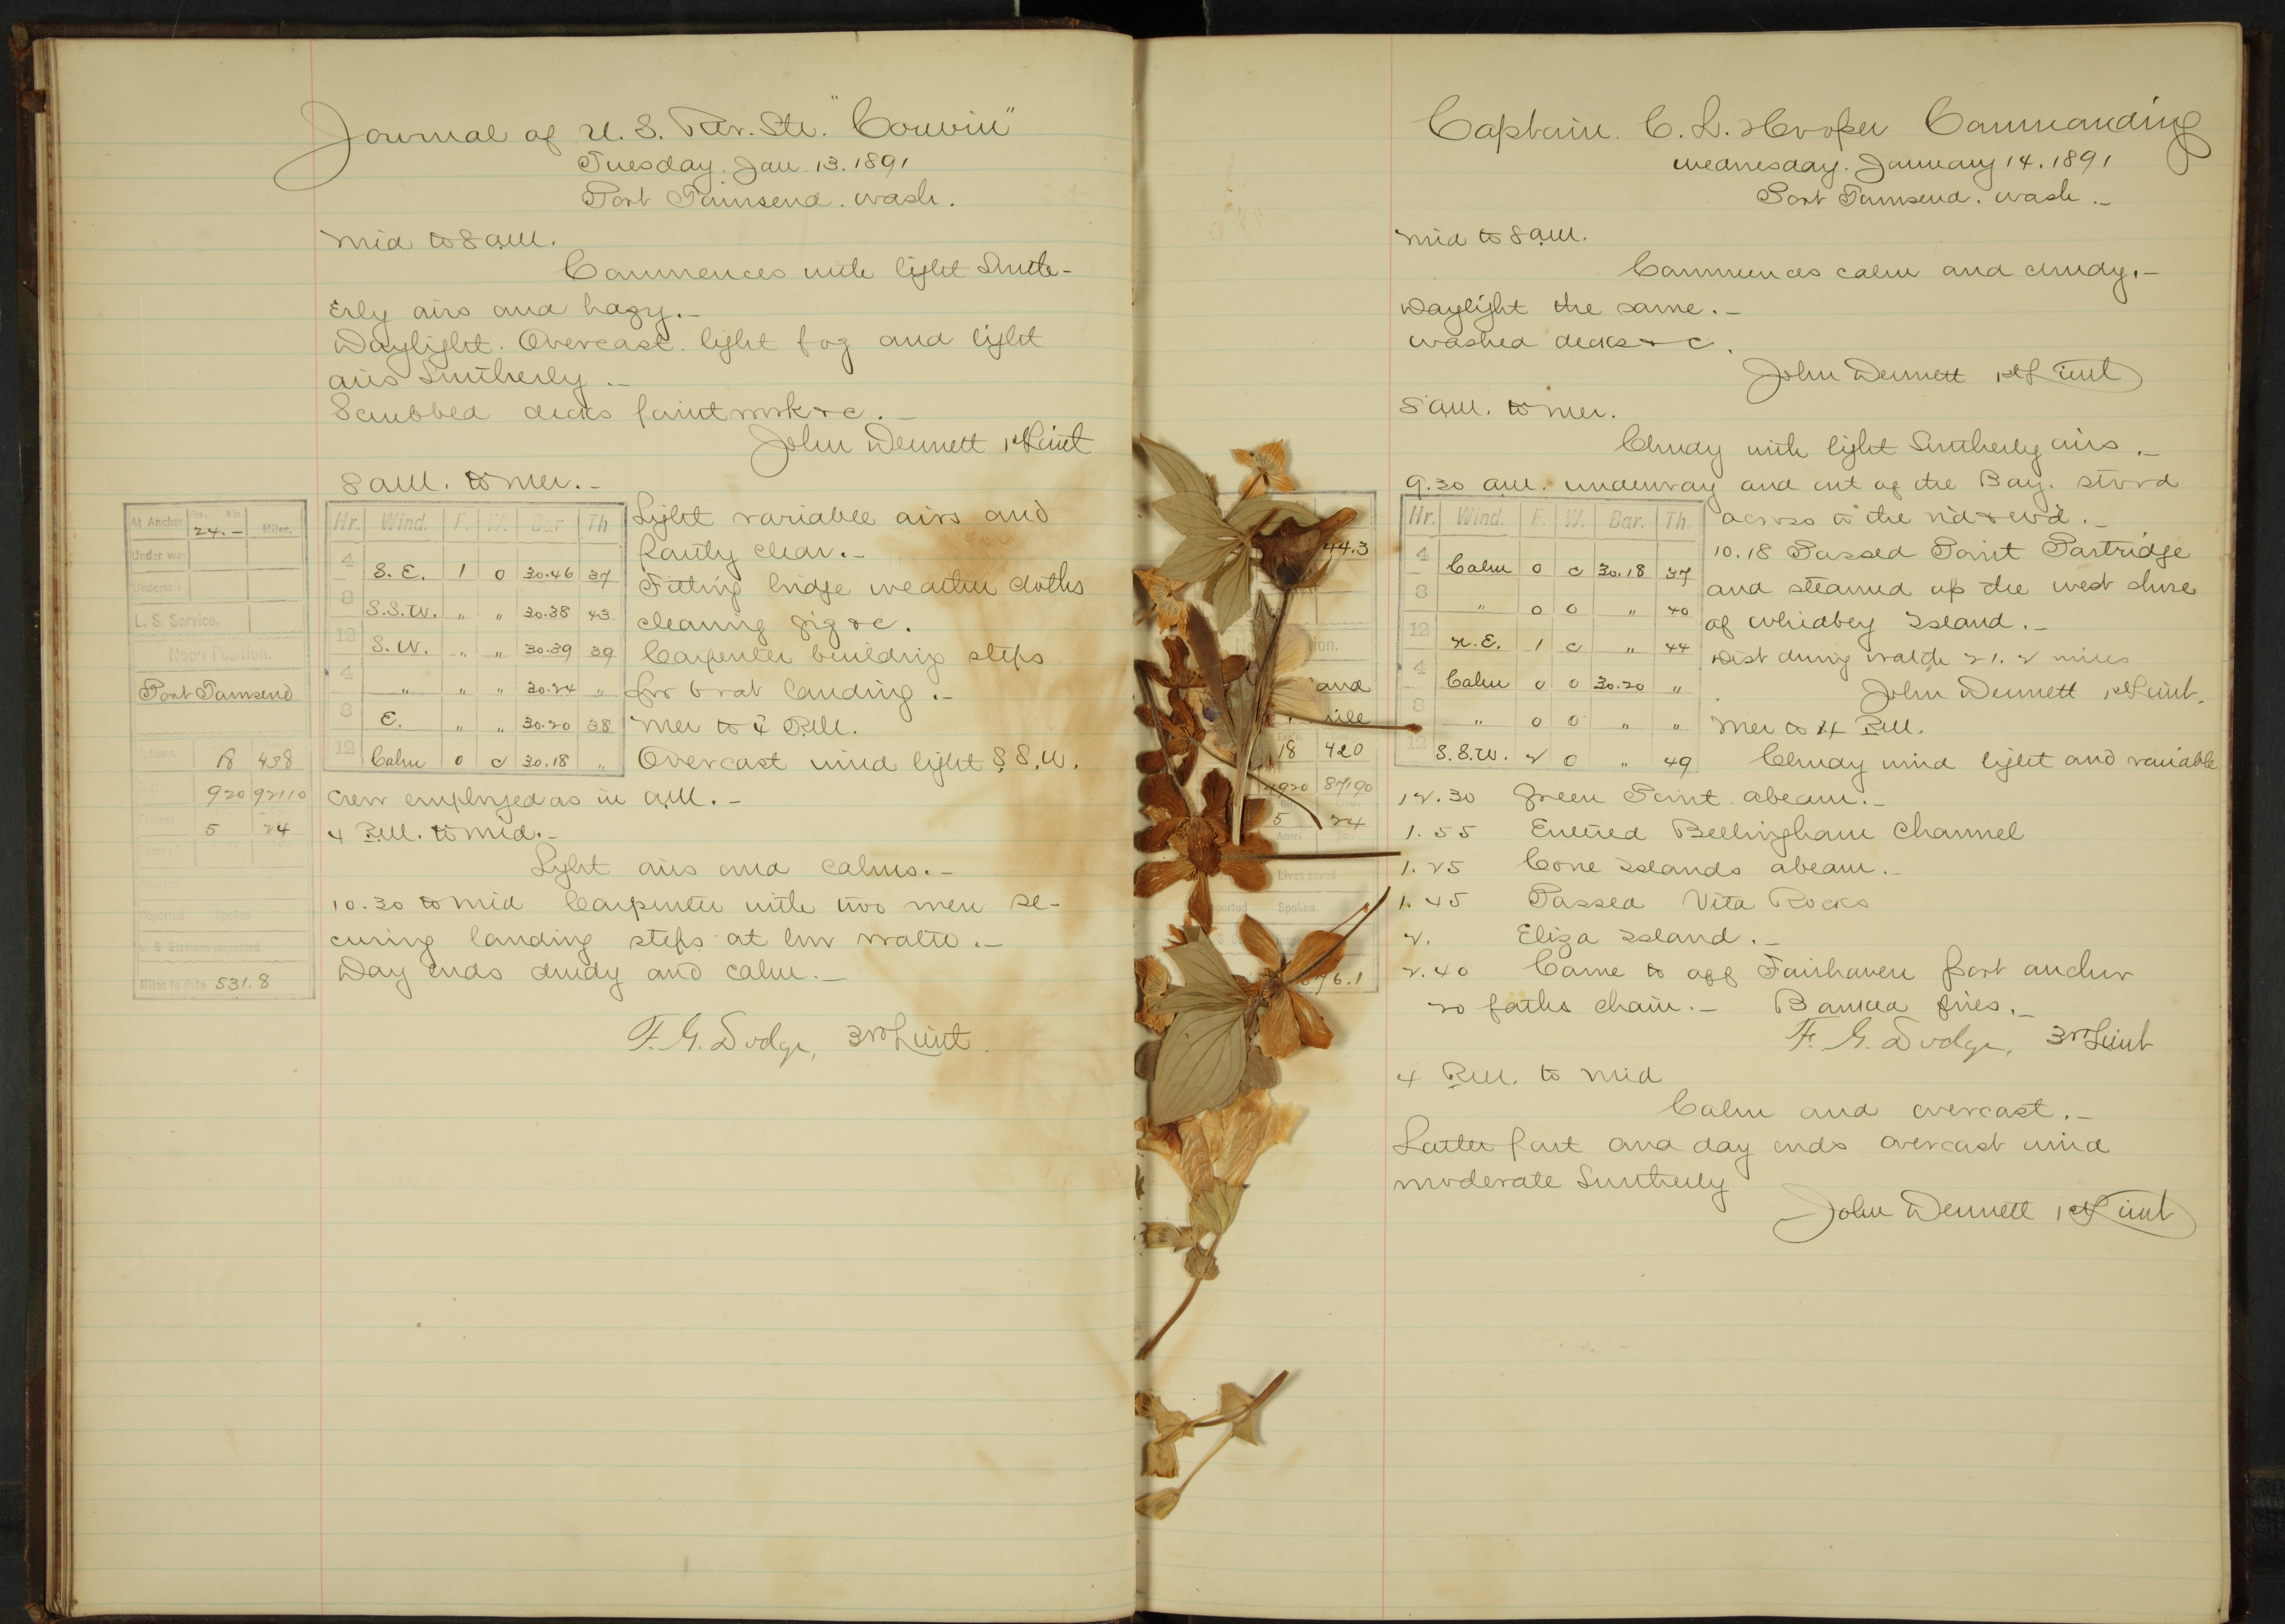 Journal of U. S. Rev. Str. "Corwin"
Tuesday. Jan. 13. 1891
Port Townsend. Wash.
Mid to 8 a.m.
Commences with light South-
erly airs and hazy.-
Daylight. Overcast. light fog and light
airs Southerly.-
Scrubbed decks paintwork &c.-
John Dennett 1st Lieut
8 a.m. to Mer.-
At Anchor Hrs. Min. 24.- Miles.
Under way
Under sail
L. S. Service.
Noon Position.
Port Townsend
18 438
920 92110
Present 5 24
Reported Spoken
L. S. Stations inspected
Miles to date 531.8
Hr. Wind. F. W. Bar. Th.
4 S. E. 1 o 30.46 37
8 S.S.W. " " 30.38 43
12 S.W. " " 30.39 39
4 " " " 30.24 "
8 E. " " 30.20 38
12 Calm 0 c 30.18 "
Light variable airs and
partly clear.-
Fitting bridge weather cloths
cleaning gig &c.
Carpenter building steps
for boat landing.-
Mer to 4 P.M.
Overcast wind light S.S.W.
Crew employed as in a.m.-
4 P.M. to mid.-
Light airs and calms.-
10.30 to mid Carpenter with two men se-
curing landing steps at low water.-
Day ends cloudy and calm.-
F. G. Dodge, 3rd Lieut.
Captain C. L. Hooper Commanding
Wednesday. January 14. 1891
Port Townsend. Wash.-
Mid to 8 a.m.
Commences calm and cloudy.-
Daylight the same.-
Washed decks &c.
John Dennett 1st Lieut
8 a.m. to Mer.
Cloudy with light Southerly airs.-
9.30 a.m. underway and out of the Bay. stood
across to the n'd & w'd.-
10.18 Passed Point Partridge
and steamed up the west shore
of Whidbey Island.-
Dist during watch 21.2 miles
John Dennett 1st Lieut.
44.3
ion.
and
18 420
4920 87190
5 24
Lives saved
Reported Spoken
76.1
Hr. Wind. F. W. Bar. Th.
4 Calm 0 c 30.18 37
8 " 0 o " 40
12 N.E. 1 c " 44
4 Calm 0 o 30.20 "
8 " 0 o " "
12 S.S.W. 2 o " 49
Mer to 4 P.M.
Cloudy wind light and variable
12.30 Green Point abeam.-
1.55 Entered Bellingham Channel
1.25 Cone Islands abeam.-
1.45 Passed Vita Rocks
2. Eliza Island.-
2.40 Came to off Fairhaven port anchor
20 faths chain.- Banked fires.-
F. G. Dodge, 3rd Lieut
4 P.M. to Mid
Calm and overcast.-
Latter part and day ends overcast wind
moderate Southerly
John Dennett 1st Lieut